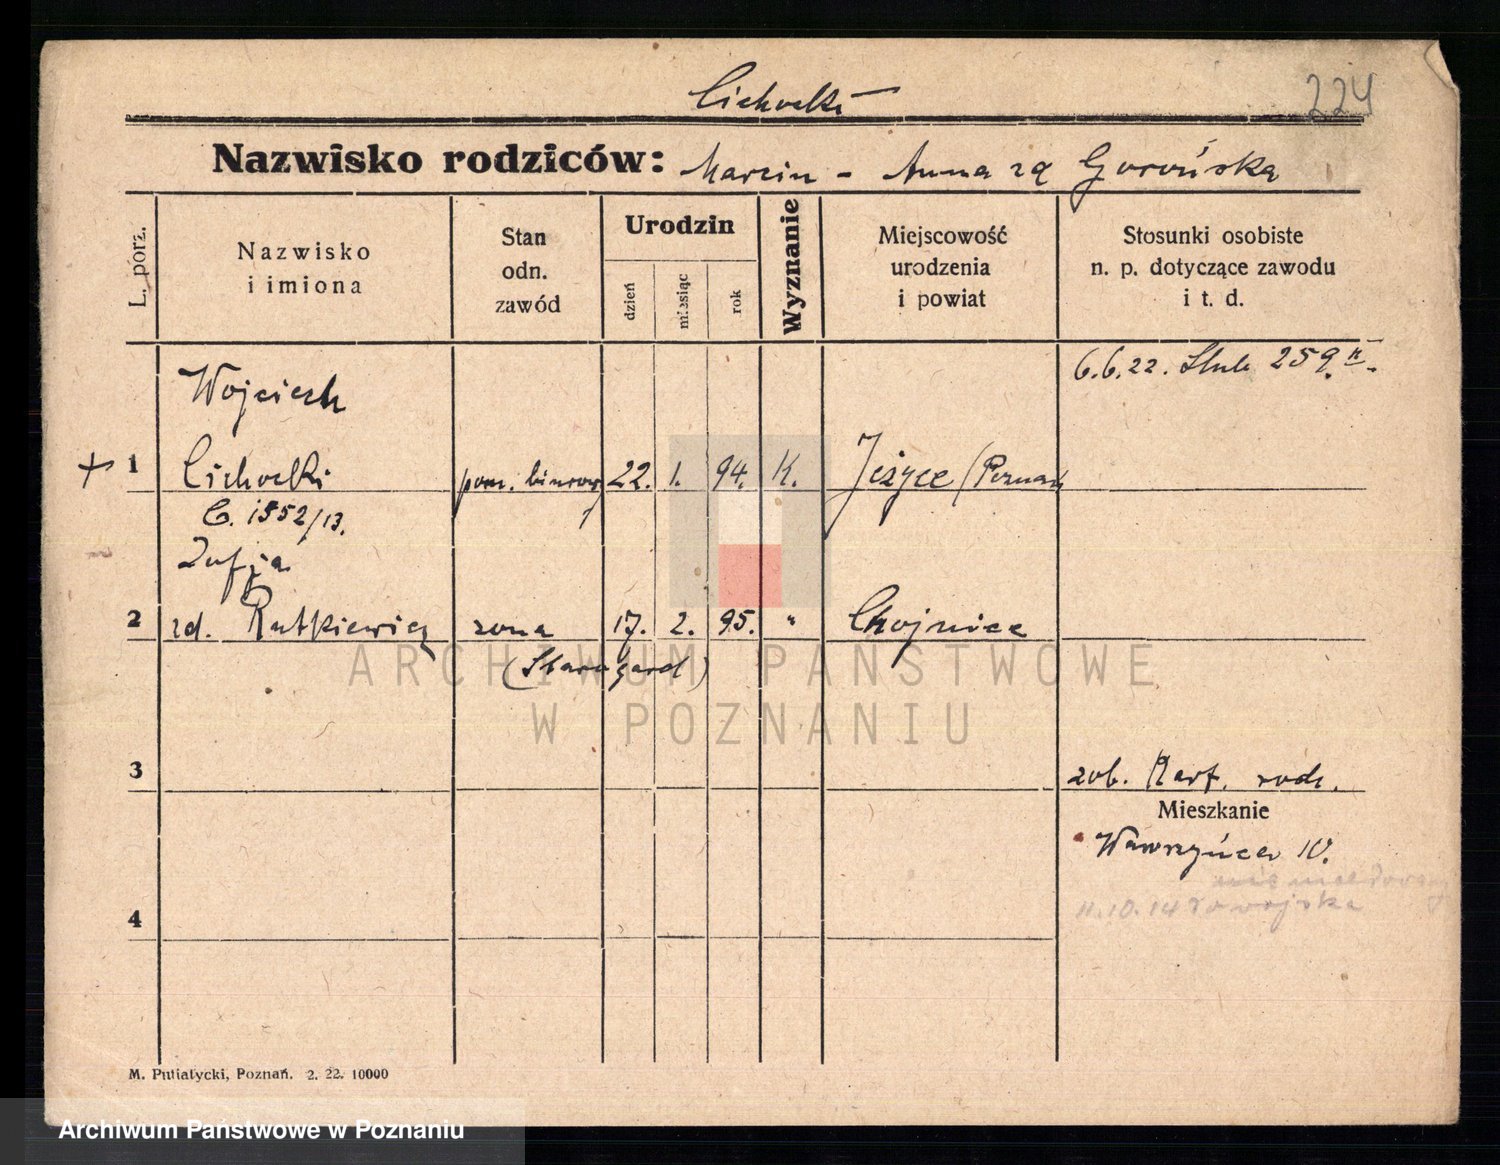 Cichocki
224
Nazwisko rodziców: Marcin - Anna zd Gorońska
L. porz.
Nazwisko
i imiona
Stan
odn.
zawód
Urodzin
dzień
miesiąc
rok
Wyznanie
Miejscowość
urodzenia
i powiat
Stosunki osobiste
n. p. dotyczące zawodu
i t. d.
6.6.22. Slub 259
Wojciech
+ 1 Cichocki pom. biurowy 22. 1. 94. K. Jeżyce (Poznań
C. 1552/13.
Zofja
2 zd. Rutkiewicz żona 17. 2. 95. " Chojnice
(Starogard)
3
zob. Kart. rodz.
Mieszkanie
Wawrzyńca 10.
11.10.14 do wojska
4
M. Putiatycki, Poznań. 2. 22. 10000
ARCHIWUM PAŃSTWOWE
W POZNANIU
Archiwum Państwowe w Poznaniu